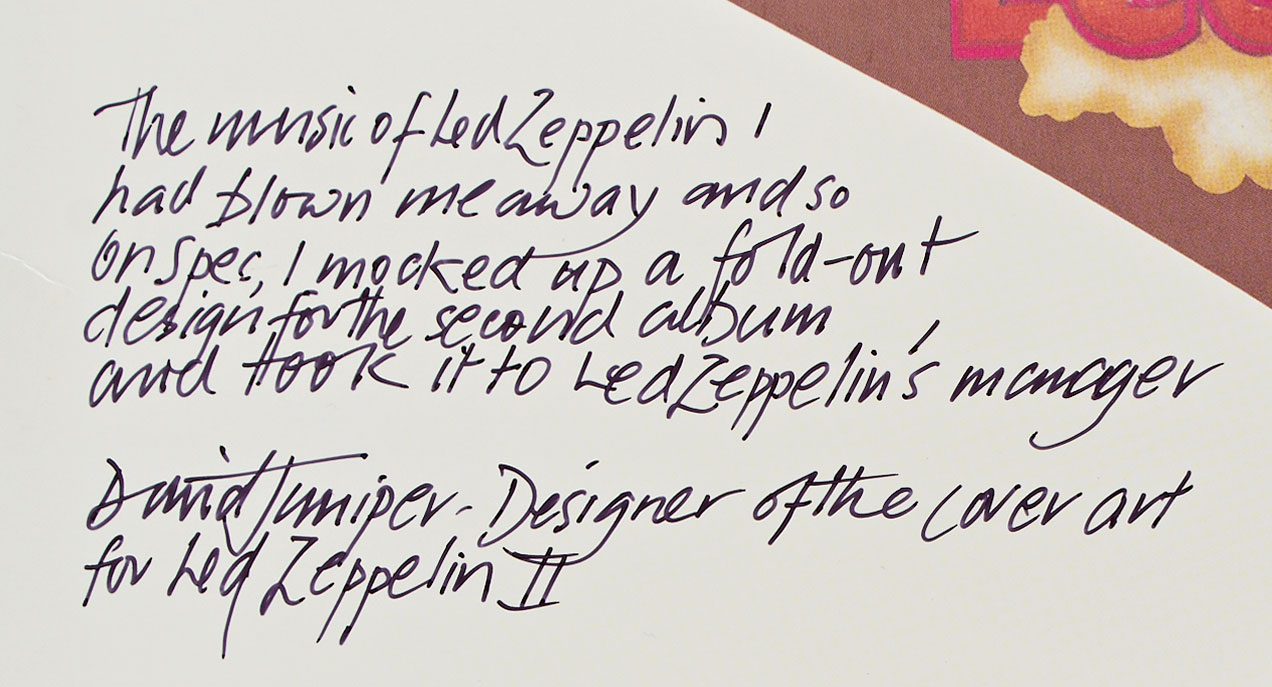 The music of Led Zeppelin I
had blown me away and so
on spec, I mocked up a fold-out
design for the second album
and took it to Led Zeppelin's manager
David Juniper - Designer of the cover art
for Led Zeppelin II